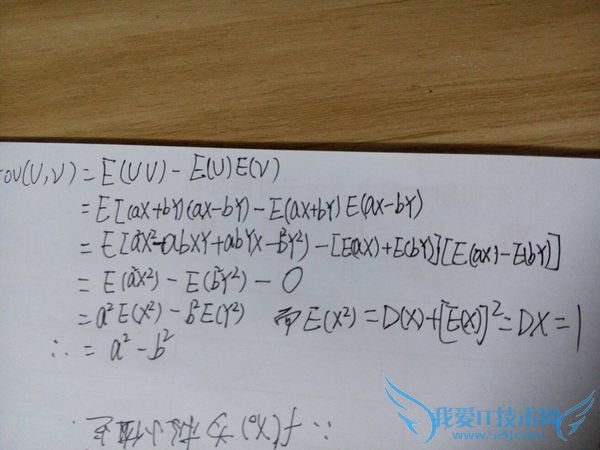 cov(U,V) = E(UV) - E(U)E(V)
= E[(ax+bY)(ax-bY) - E(ax+bY)E(ax-bY)
= E[a²X²-abXY+abYX-b²Y²] - [E(ax)+E(bY)][E(ax)-E(bY)]
= E(a²X²) - E(b²Y²) - 0
= a²E(X²) - b²E(Y²) 而E(X²) = D(X)+[E(X)]² = DX = 1
∴ = a² - b²
∴ f(x₀)为极小值
我爱IT技术网
www.52ij.com